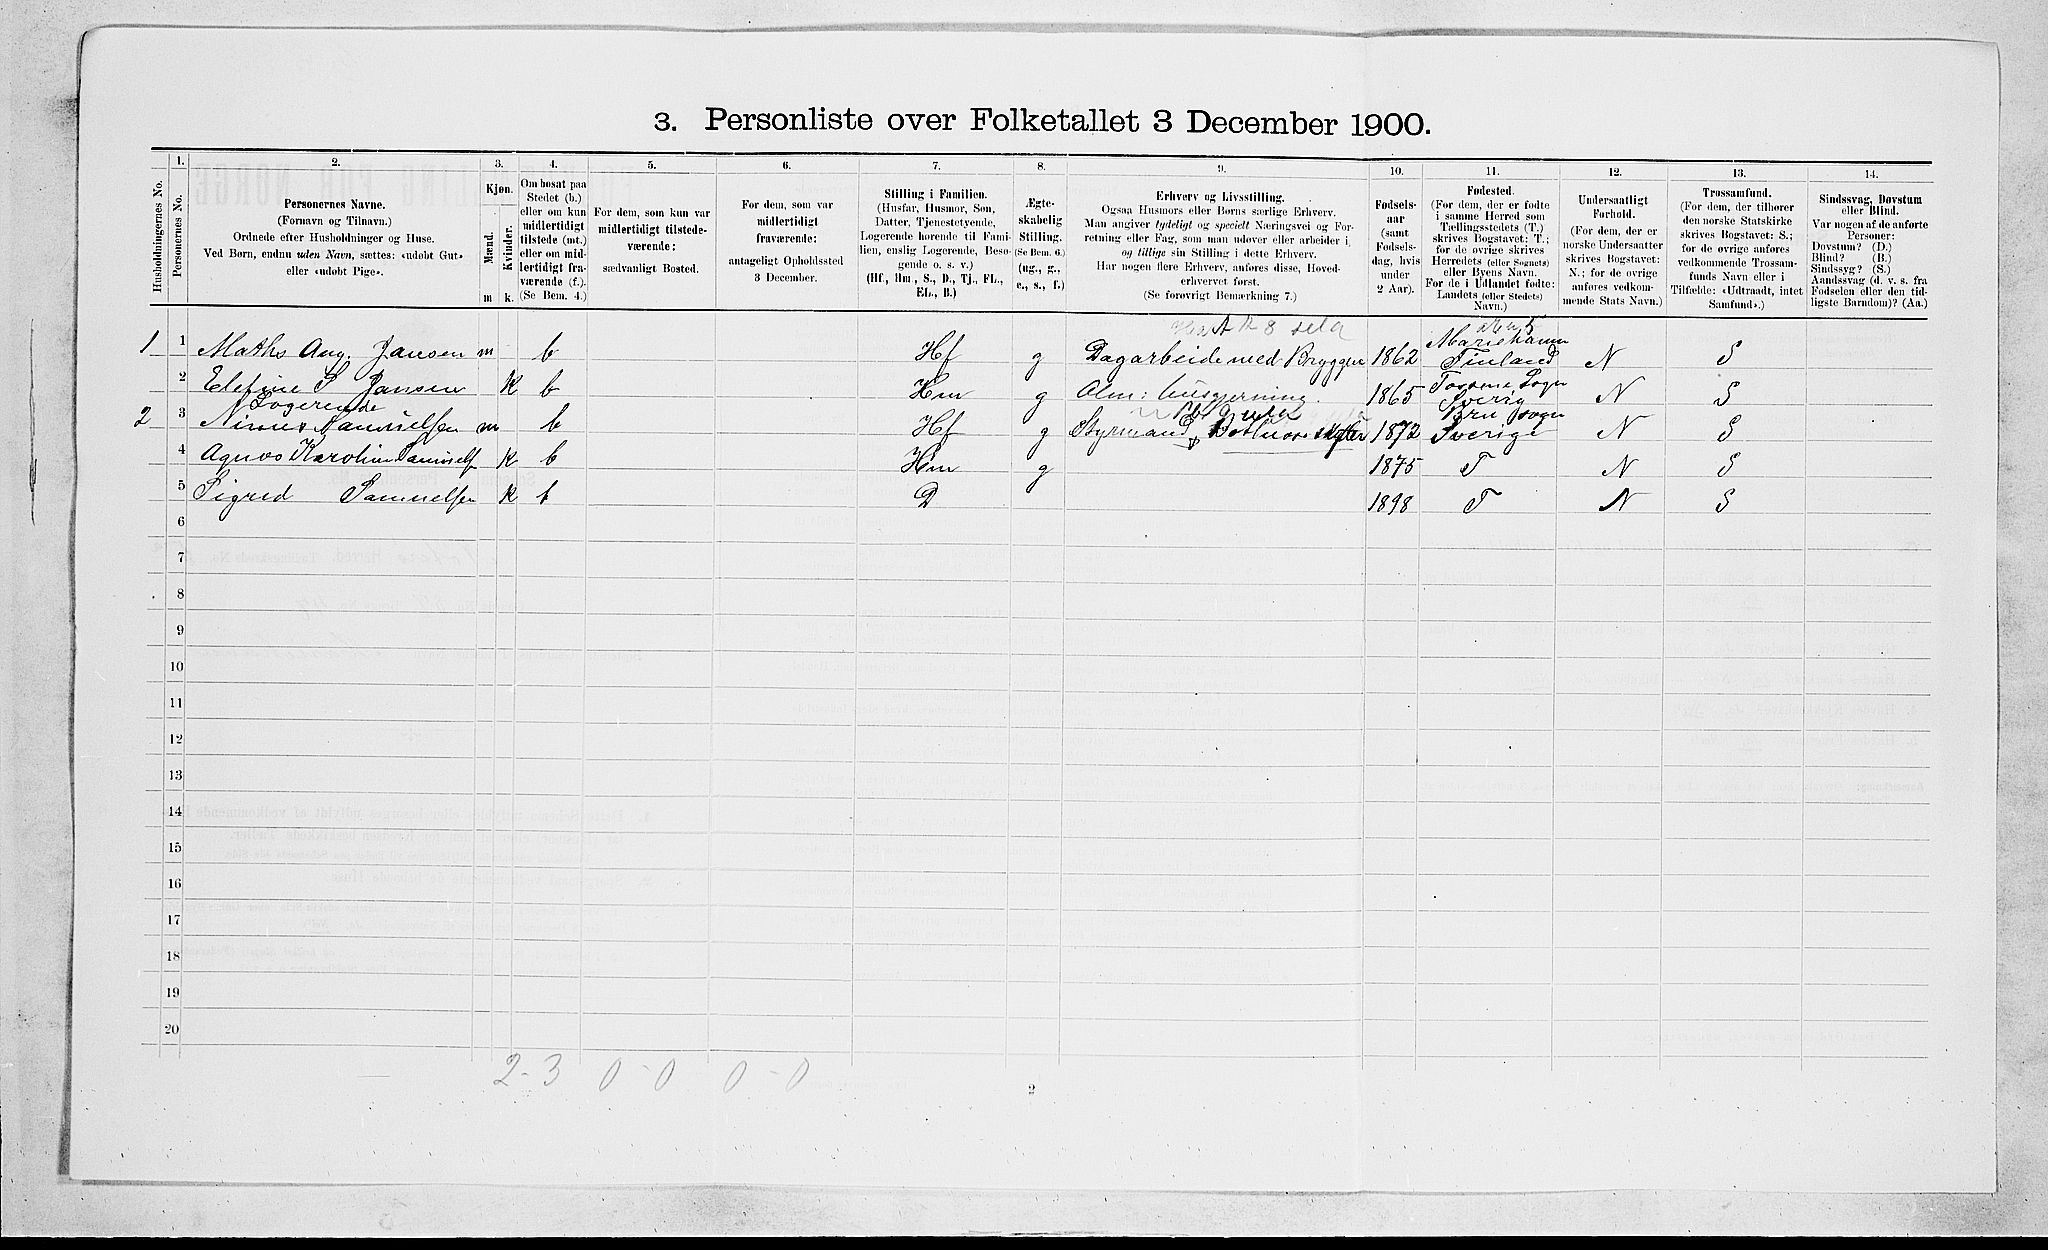 3. Personliste over Folketallet 3 December 1900.
Husholdningernes No.
1. Personernes No.
2. Personernes Navne.
(Fornavn og Tilnavn.)
Ordnede efter Husholdninger og Huse.
Ved Børn, endnu uden Navn, sættes: «udøbt Gut»
eller «udøbt Pige».
3. Kjøn.
Mænd. Kvinder.
m k.
4. Om bosat paa
Stedet (b.)
eller om kun
midlertidigt
tilstede (mt.)
eller om mid-
lertidigt fra-
værende (f.).
(Se Bem. 4.)
5. For dem, som kun var
midlertidigt tilstede-
værende:
sædvanligt Bosted.
6. For dem, som var
midlertidigt
fraværende:
antageligt Opholdssted
3 December.
7. Stilling i Familien.
(Husfar, Husmor, Søn,
Datter, Tjenestetyende,
Logerende hørende til Fami-
lien, enslig Logerende, Besø-
gende o. s. v.)
(Hf, Hm, S., D., Tj., FL.,
EL., B.)
8. Ægte-
skabelig
Stilling.
(Se Bem. 6.)
(ug., g.,
e., s., f.)
9. Erhverv og Livsstilling.
Ogsaa Husmors eller Børns særlige Erhverv.
Man angiver tydeligt og specielt Næringsvei og For-
retning eller Fag, som man udøver eller arbeider i,
og tillige sin Stilling i dette Erhverv.
Har nogen flere Erhverv, anføres disse, Hoved-
erhvervet først.
(Se forøvrigt Bemærkning 7.)
10. Fødsels-
aar
(samt
Fødsels-
dag, hvis
under
2 Aar).
11. Fødested.
(For dem, der er fødte
i samme Herred som
Tællingsstedets (T.)
skrives Bogstavet: T.;
for de øvrige skrives
Herredets (eller Sognets)
eller Byens Navn.
For de i Udlandet fødte:
Landets (eller Stedets)
Navn.)
12. Undersaatligt
Forhold.
(For dem, der er
norske Undersaatter
skrives Bogstavet:
N.; for de øvrige
anføres vedkom-
mende Stats Navn.)
13. Trossamfund.
(For dem, der tilhører
den norske Statskirke
skrives Bogstavet: S.;
for de øvrige anføres
vedkommende Trossam-
funds Navn eller i
Tilfælde: «Udtraadt, intet
Samfund».)
14. Sindssvag, Døvstum
eller Blind.
Var nogen af de anførte
Personer:
Døvstum? (D.)
Blind? (B.)
Sindssyg? (S.)
Aandssvag (d. v. s. fra
Fødselen eller den tid-
ligste Barndom)? (Aa.)
1 1 Maths Aug. Jansen m b Hf g Dagarbeide med Bryggen 1862 Mariehamn Finland N S
2 Elefine S Jansen k b Hm g Alm: husgjerning. 1865 Sogn Sverig N S
Logerende
2 3 Samuelsen m b Hf g Styrmand 1872 Bru sogn Sverige N S
4 Agnes Karoline Samuelsf k b Hm g 1875 T N S
5 Sigred Samuelsen k b D 1898 T N S
6
7
8
9
10
11
12
13
14
15
16
17
18
19
20
2-3 0-0 0-0
2